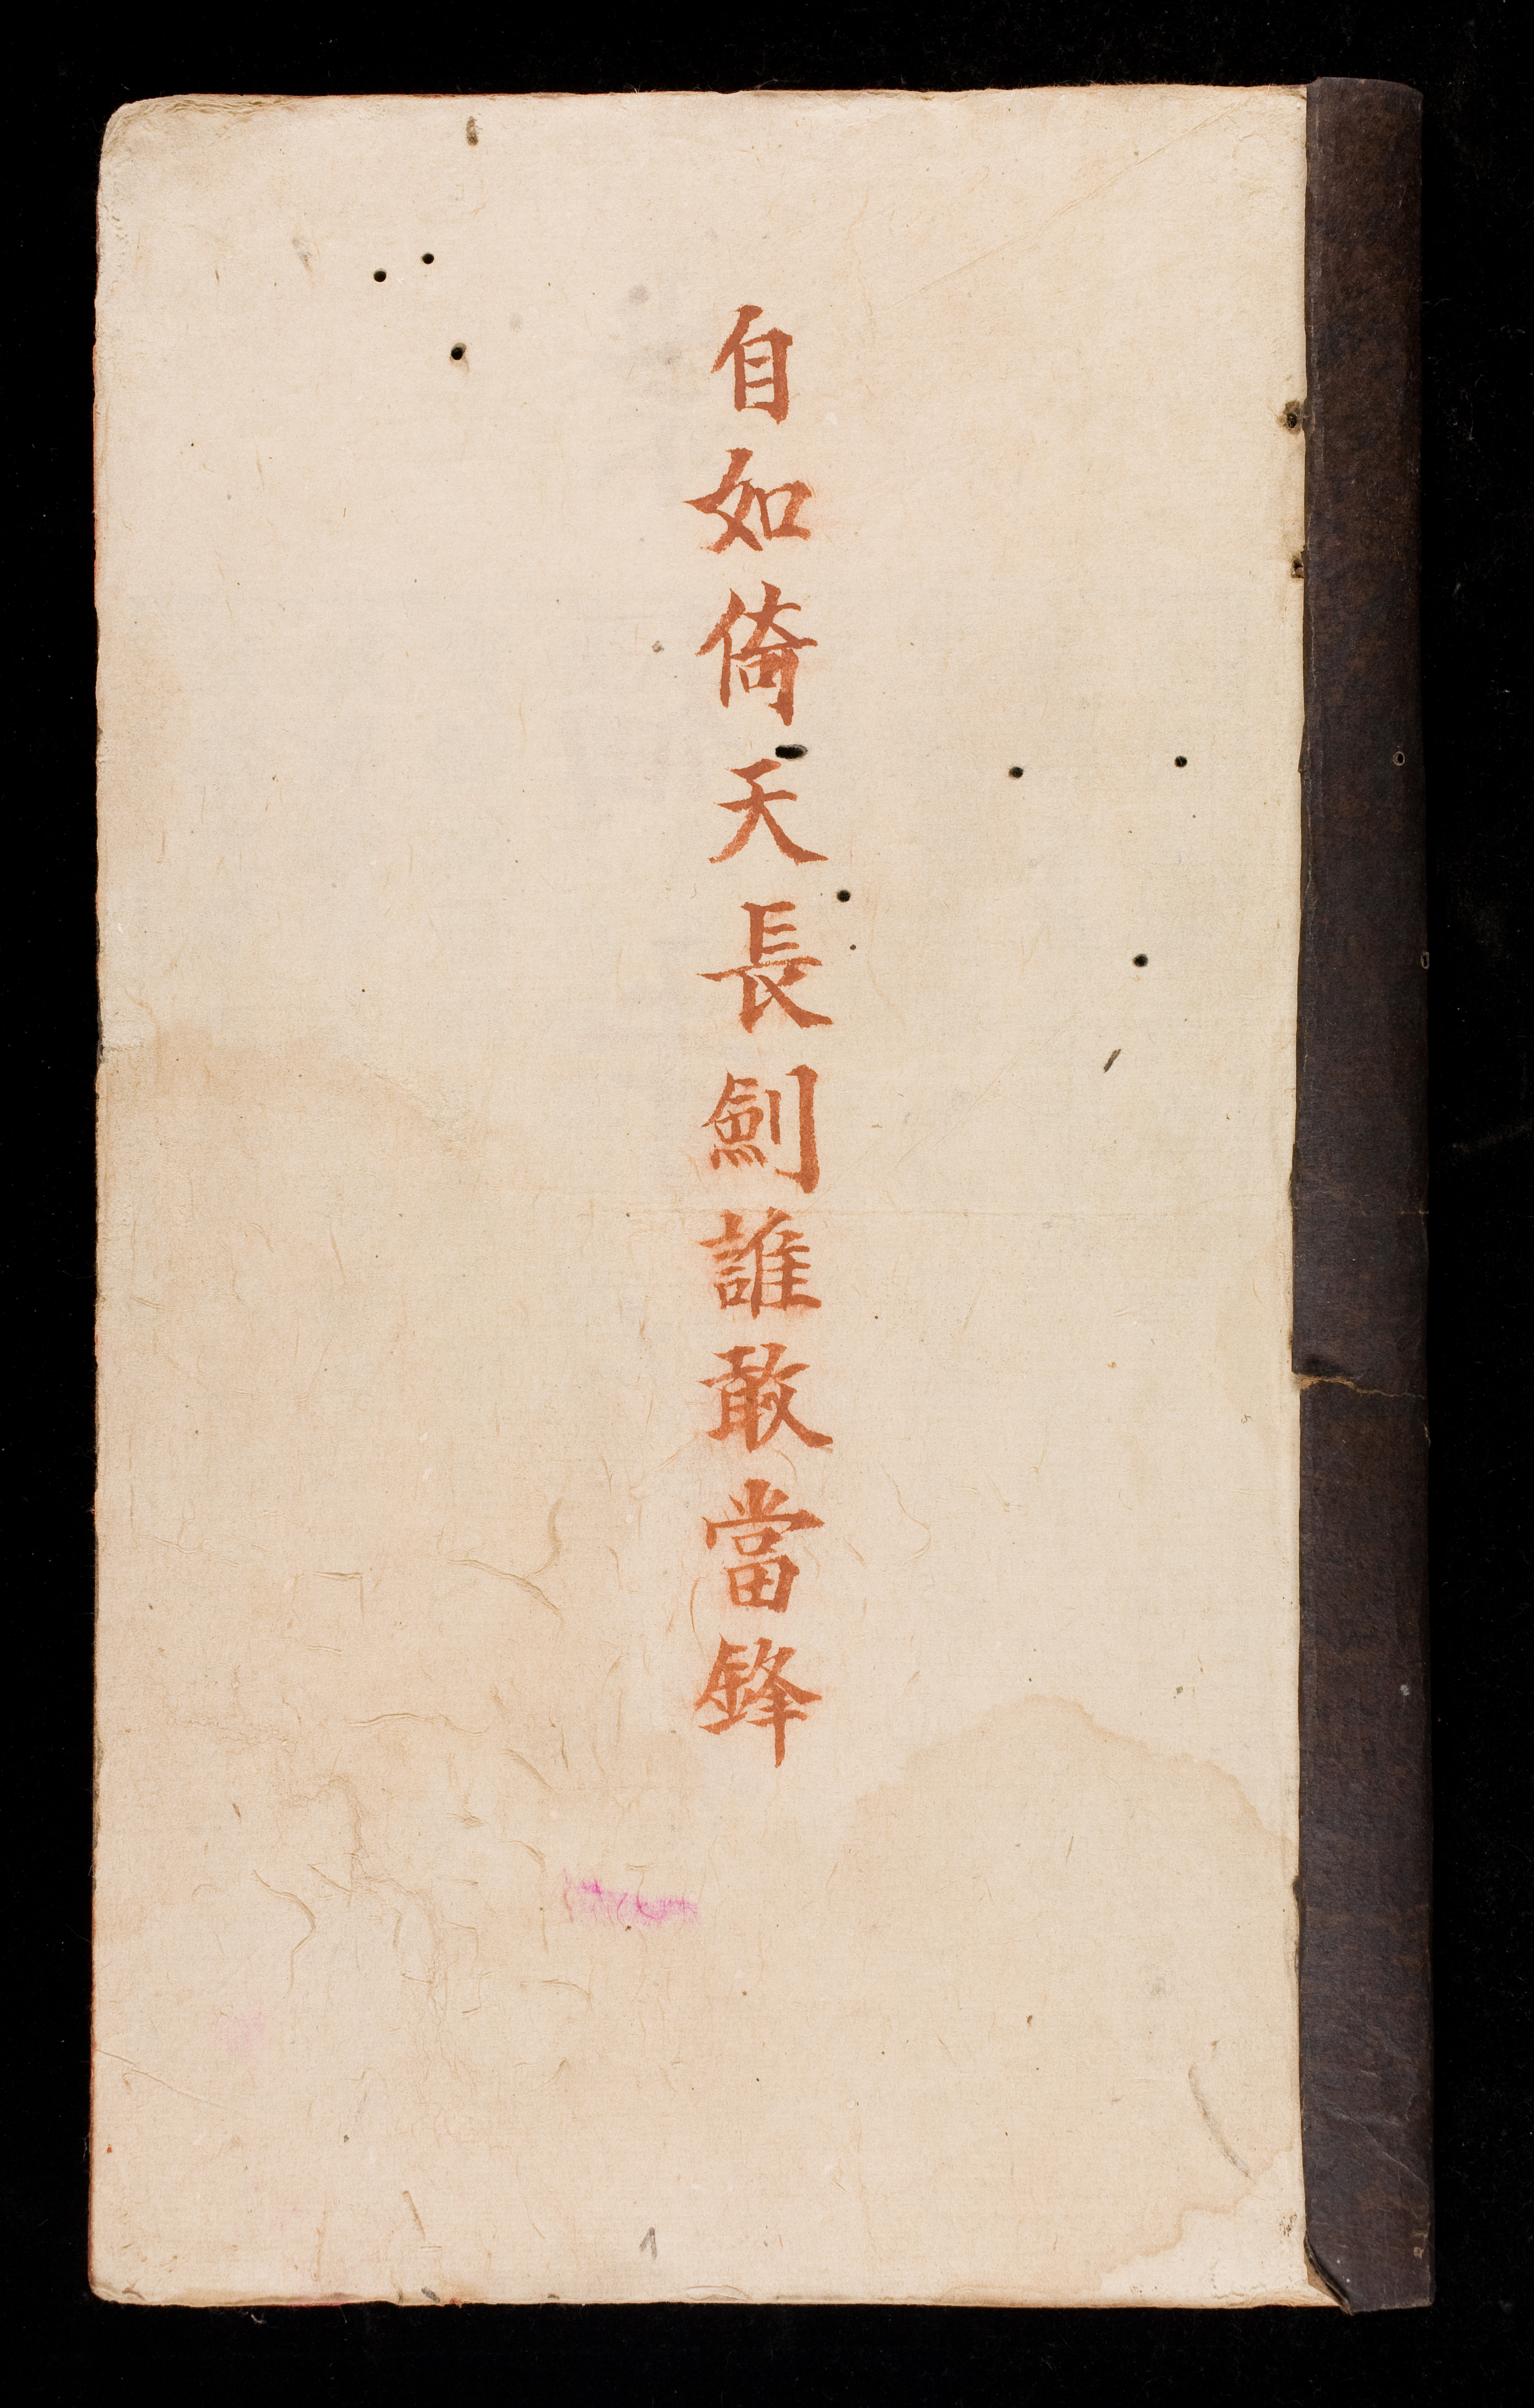 自如倚天長劍誰敢當鋒
1